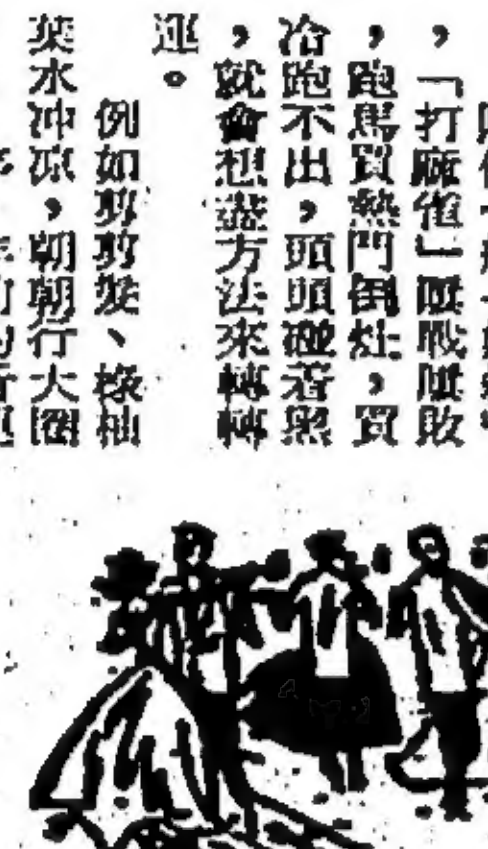 ，「打麻雀」屢戰屢敗
，跑馬買熱門倒灶，買
冷跑不出，頭頭碰着黑
，就會想盡方法來轉轉
運。
例如剪剪髮、椽柚
葉水冲凉，朝朝行大圈